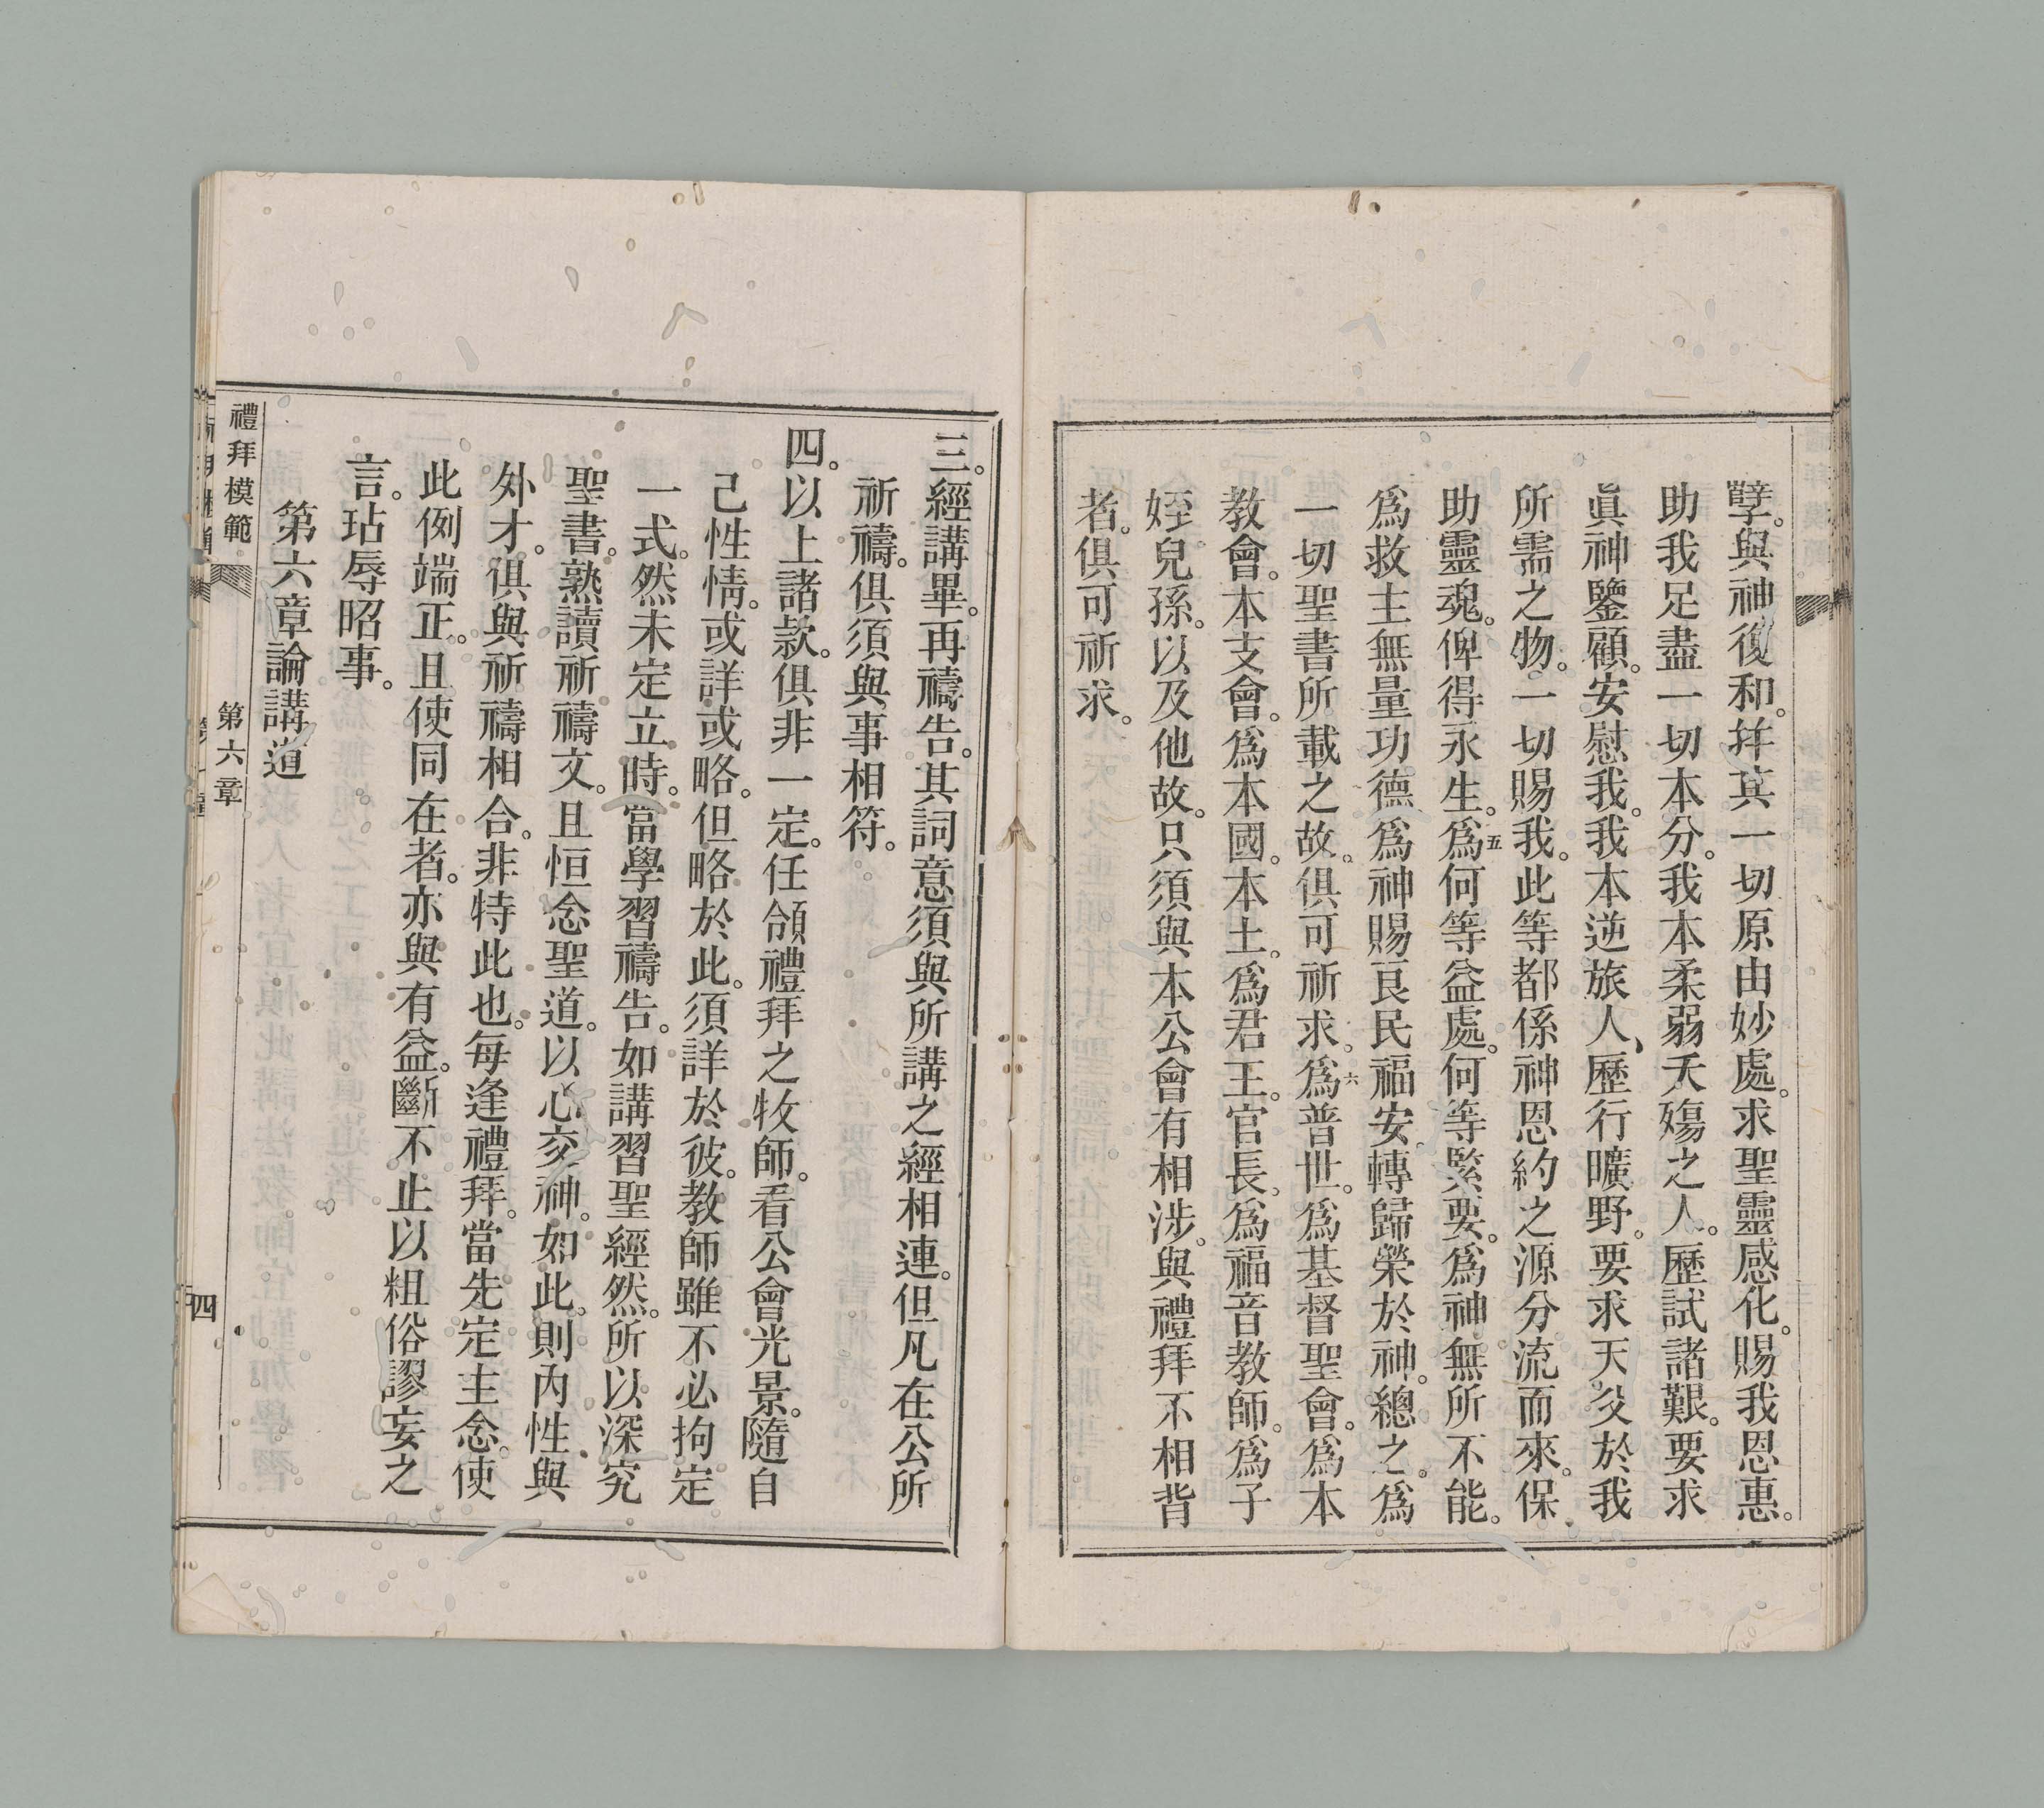 孽。與神復和。幷其一切原由妙處。求聖靈感化。賜我恩惠。
助我足盡一切本分。我本柔弱夭殤之人。歷試諸艱。要求
眞神鑒顧。安慰我。我本逆旅人、歷行曠野。要求天父於我
所需之物。一切賜我。此等都係神恩約之源分流而來。保
助靈魂。俾得永生。五爲何等益處。何等緊要。爲神無所不能。
爲救主無量功德。爲神賜良民福安。轉歸榮於神。總之。爲
一切聖書所載之故。俱可祈求。六爲普世。爲基督聖會。爲本
教會。本支會。爲本國。本土。爲君王。官長。爲福音教師。爲子
姪。兒孫。以及他故。只須與本公會有相涉。與禮拜不相背
者。俱可祈求。
三。經講畢。再禱告。其詞意須與所講之經相連。但凡在公所
祈禱。俱須與事相符。
四。以上諸款。俱非一定。任領禮拜之牧師。看公會光景。隨自
己性情。或詳或略。但略於此。須詳於彼。教師雖不必拘定
一式。然未定立時。當學習禱告。如講習聖經然。所以深究
聖書。熟讀祈禱文。且恒念聖道。以心交神。如此。則內性與
外才。俱與祈禱相合。非特此也。每逢禮拜。當先定主念。使
此例端正。且使同在者。亦與有益。斷不止以粗俗謬妄之
言。玷辱昭事。
第六章論講道
禮拜模範
第六章
四